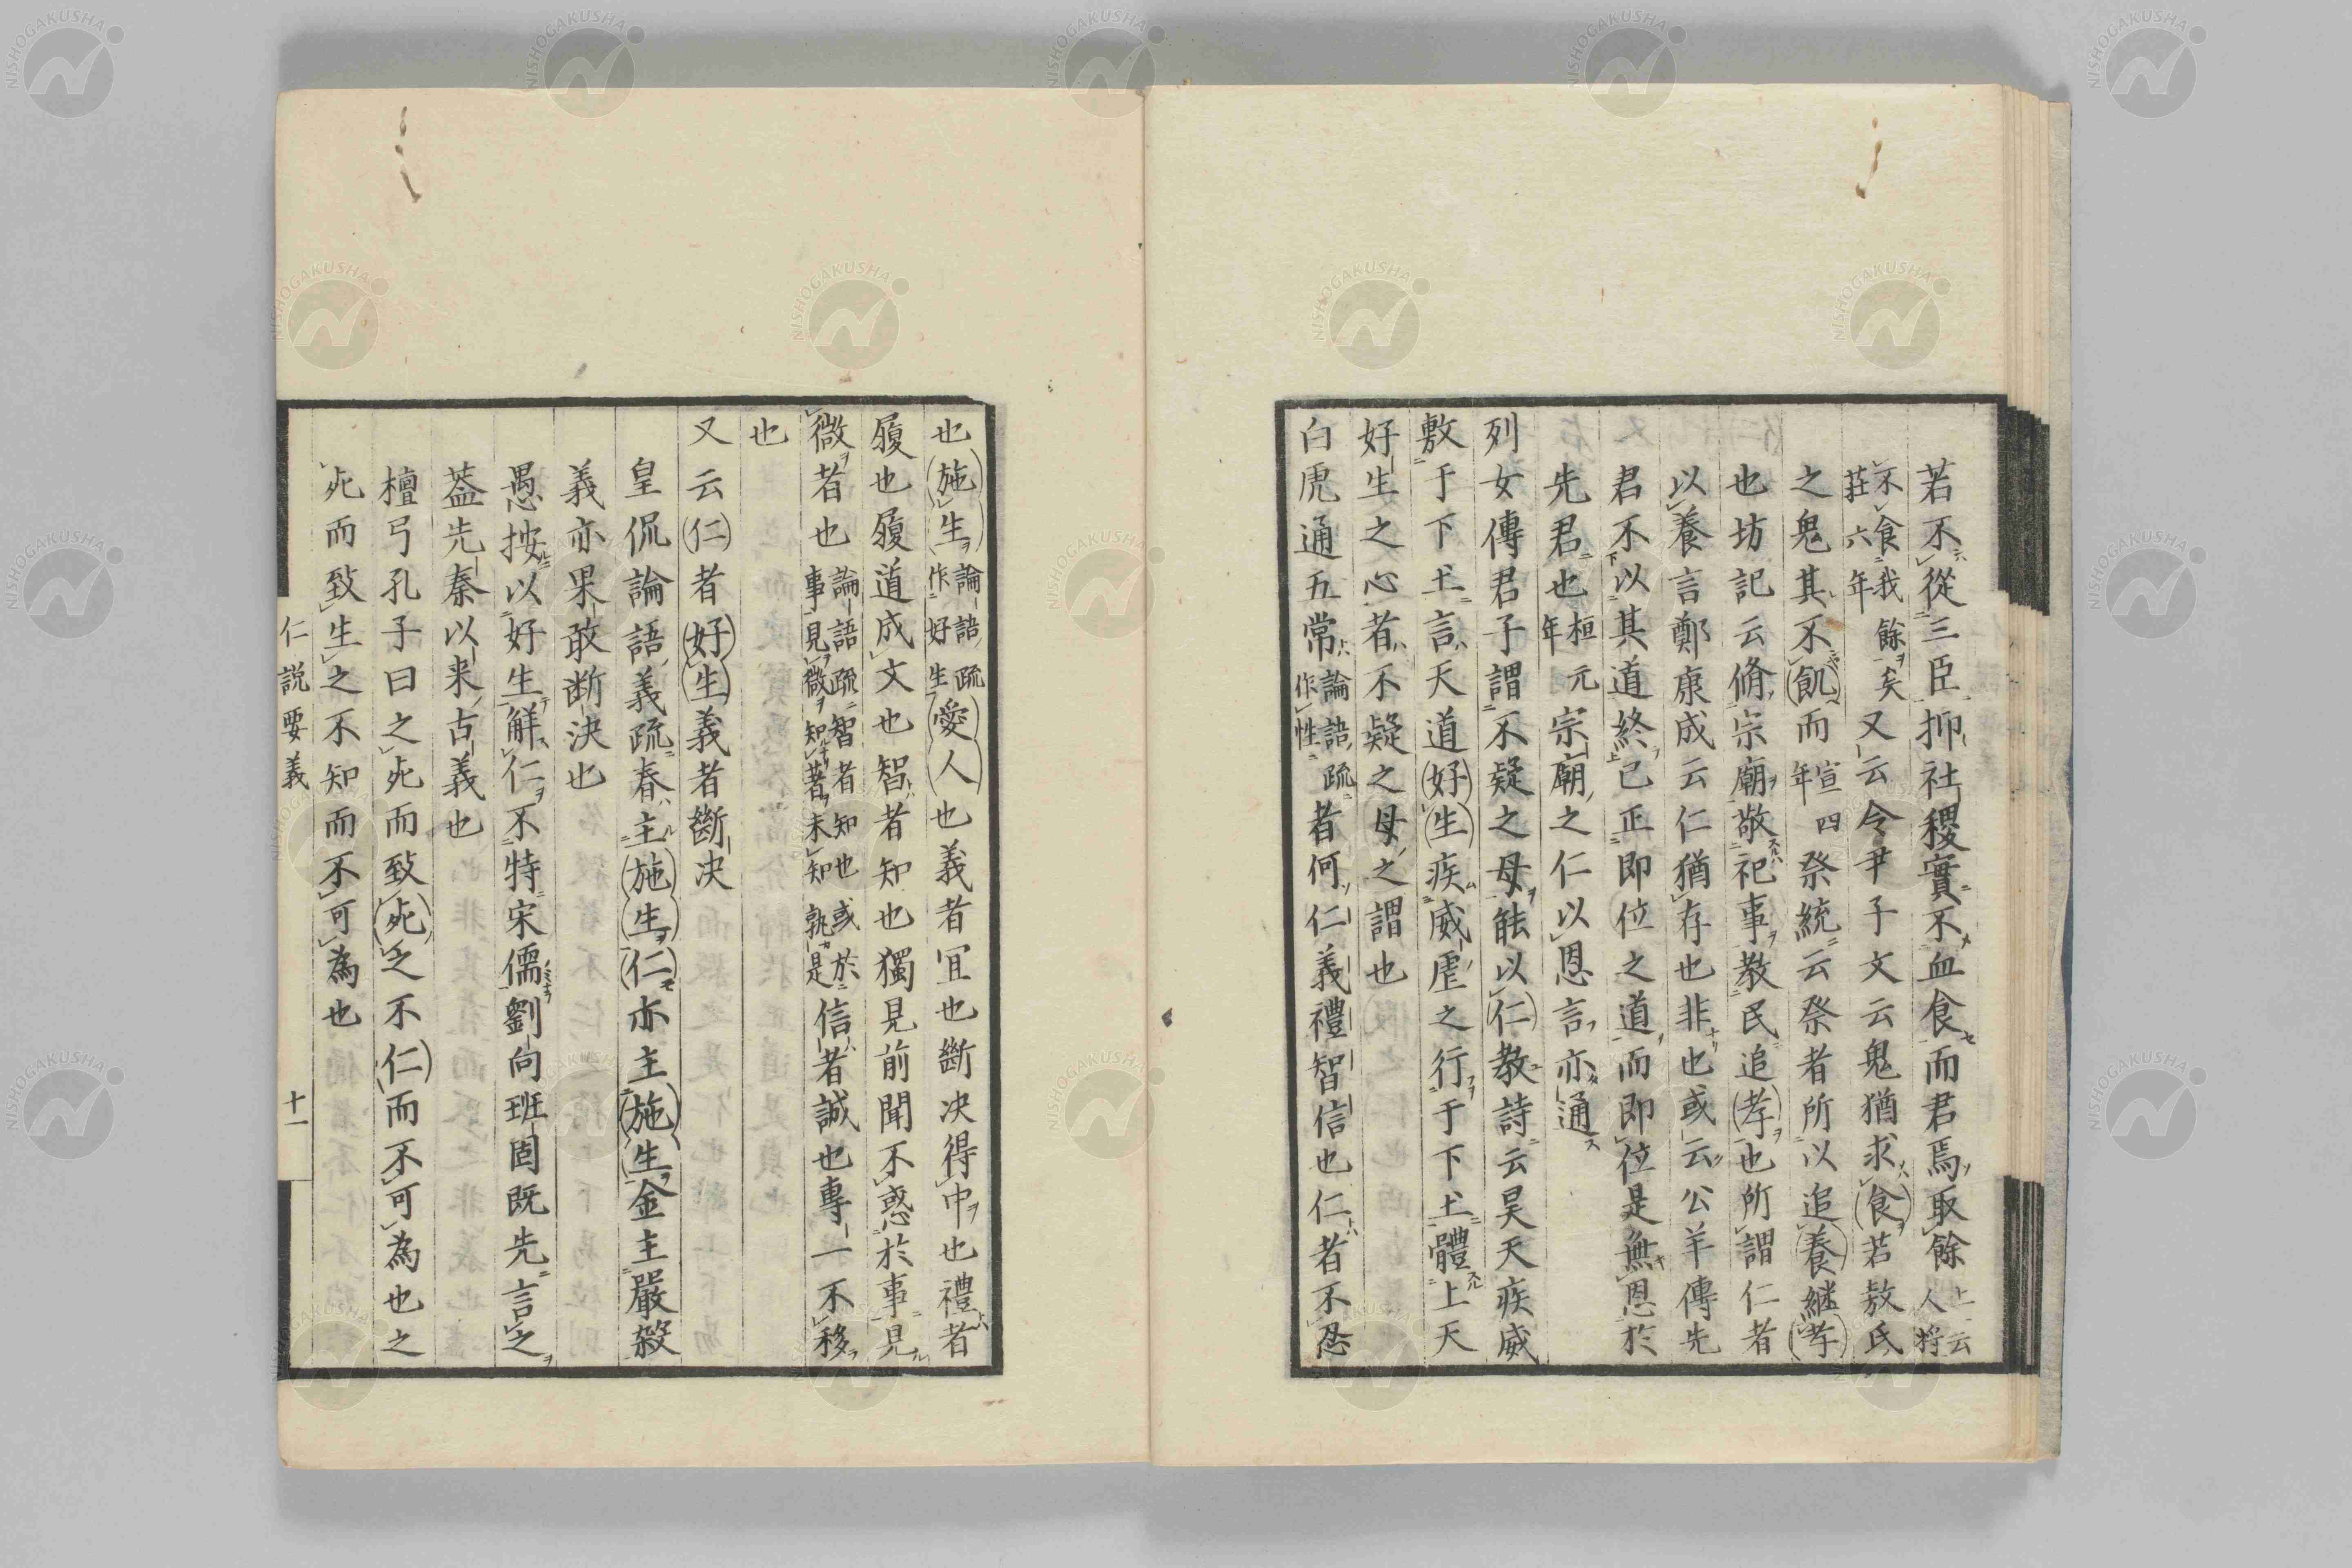 若不從三臣抑社稷實不血食而君焉取餘上云人將
不食我餘矣莊六年又云令尹子文云鬼猶求食若敖氏
之鬼其不飢而宣四年祭統云祭者所以追養継孝
也坊記云脩宗廟敬祀事教民追孝也所謂仁者
以養言鄭康成云仁猶存也非也或云公羊傳先
君不以其道終己正即位之道而即位是無恩於
先君也桓元年宗廟之仁以恩言亦通
列女傳君子謂不疑之母能以仁教詩云昊天疾威
敷于下土言天道好生疾威虐之行于下土體上天
好生之心者不疑之母之謂也
白虎通五常論語疏作性者何仁義禮智信也仁者不忍
也施生論語疏作好生愛人也義者宜也斷决得中也禮者
履也履道成文也智者知也獨見前聞不惑於事見
微者也論語疏智者知也或於事見微知著未知孰是信者誠也專一不移
也
又云仁者好生義者斷决
皇侃論語義疏春主施生仁亦主施生金主嚴殺
義亦果敢断決也
愚按以好生解仁不特宋儒劉向班固既先言之
葢先秦以来古義也
檀弓孔子曰之死而致死之不仁而不可為也之
死而致生之不知而不可為也
仁說要義
十一
NISHOGAKUSHA